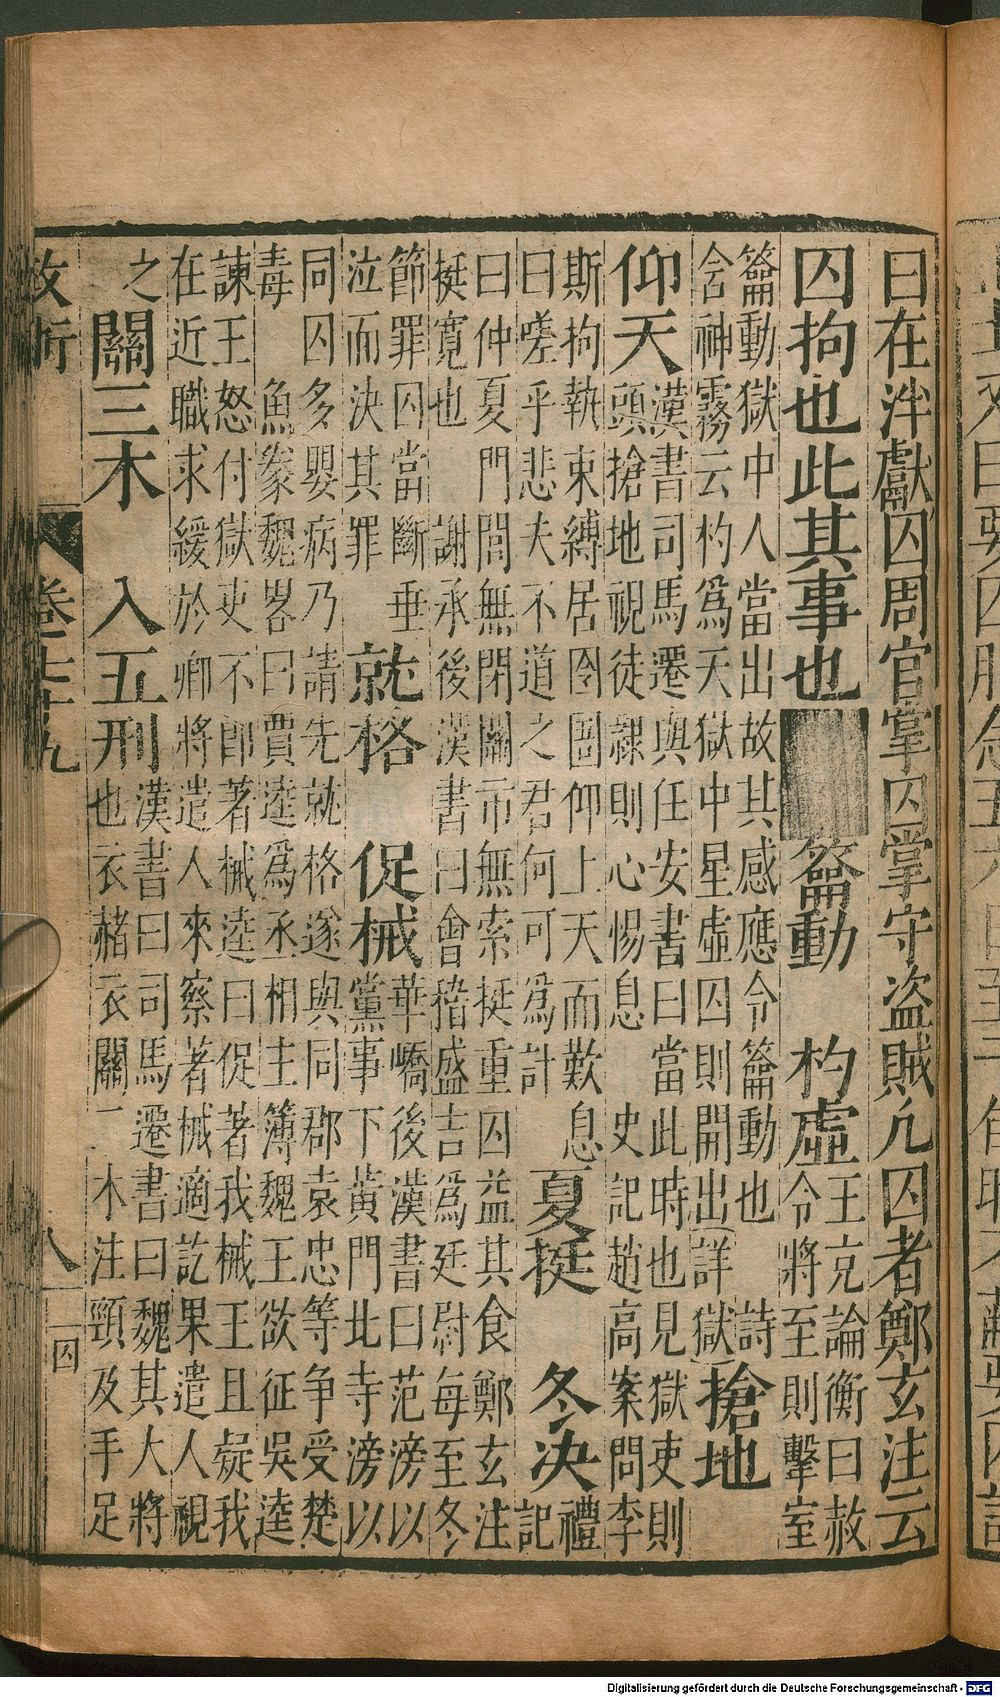 曰在泮獻囚周官掌囚掌守盗賊凢囚者鄭玄注云
囚拘也此其事也 籥動 杓虚 王充論衡曰赦
令將至則擊室
籥動獄中人當出故其感應令籥動也 詩
含神霧云杓爲天獄中星虚囚則開出詳獄 搶地
仰天 漢書司馬遷與任安書曰當此時也見獄吏則
頭搶地視徒隷則心惕息 史記趙高案問李
斯拘執束縛居囹圄仰上天而歎息
曰嗟乎悲夫不道之君何可爲計 夏挺 冬决 禮
記
曰仲夏門閭無閉關市無索挺重囚益其食鄭玄注
挺寛也 謝承後漢書曰會稽盛吉爲廷尉每至冬
節罪囚當斷垂
泣而決其罪 就格 促械 華嶠後漢書曰范滂以
黨事下黄門北寺滂以
同囚多嬰病乃請先就格遂與同郡袁忠等争受楚
毒 魚豢魏畧曰賈逵爲丞相主簿魏王欲征吳逵
諫王怒付獄吏不卽著械逵曰促著我械王且疑我
在近職求緩於卿將遣人來察著械適訖果遣人視
之 關三木 入五刑 漢書曰司馬遷書曰魏其大將
也衣赭衣關二木注頸及手足
政術 卷七十九 八 囚
Digitalisierung gefördert durch die Deutsche Forschungsgemeinschaft - DFG